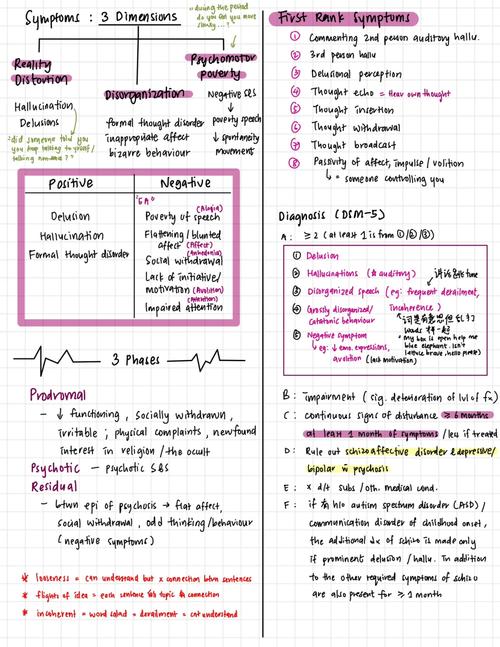 Symptoms : 3 Dimensions
"during the period do you feel you move slowly...?"
Reality Distortion
Hallucination
Delusions
"did someone told you
you keep talking to yourself /
talking nonsense ??
Disorganization
formal thought disorder
inappropiate affect
bizarre behaviour
Psychomotor poverty
Negative S&S
↓
poverty speech
↓ spontaneity
movement
Positive
Delusion
Hallucination
Formal thought disorder
Negative
"5A"
(Alogia)
Poverty of speech
Flattening / blunted
affect (Affect)
(Anhedonia)
Social withdrawal
Lack of initiative/
motivation (Avolition)
(Attention)
Impaired attention
3 Phases
Prodromal
- ↓ functioning , socially withdrawn ,
irritable ; physical complaints , newfound
interest in religion / the occult
Psychotic - psychotic S&S
Residual
- btwn epi of psychosis → flat affect,
social withdrawal , odd thinking/behaviour
(negative symptoms)
* looseness = can understand but x connection btwn sentences
* flights of idea = each sentence topic connection
* incoherent = word salad = derailment = cnt understand
First Rank Symptoms
① Commenting 2nd person auditory hallu.
② 3rd person hallu
③ Delusional perception
④ Thought echo = Hear own thought
⑤ Thought insertion
⑥ Thought withdrawal
⑦ Thought broadcast
⑧ Passivity of affect, impulse / volition
↳ = someone controlling you
Diagnosis (DSM-5)
A : ≥ 2 (at least 1 is from ①/②/③)
① Delusion
② Hallucinations (* auditory)
③ Disorganized speech (eg: frequent derailment,
incoherence)
④ Grossly disorganized/
catatonic behaviour
⑤ Negative symptom
↳ eg: ↓ emo. expressions,
avolition (lack motivation)
* My box is open help me
blue elephant. isn't
lettuce brave, hello please)
B : impairment (sig. deterioration of lvl of fx)
C : continuous signs of disturbance ≥ 6 months
at least 1 month of symptoms / less if treated
D : Rule out schizoaffective disorder & depressive/
bipolar w psychosis
E : x d/t subs / oth. medical cond.
F : if 有 h/o autism spectrum disorder (ASD) /
communication disorder of childhood onset,
the additional dx of schizo is made only
if prominent delusion / hallu. in addition
to the other required symptoms of schizo
are also present for ≥ 1 month